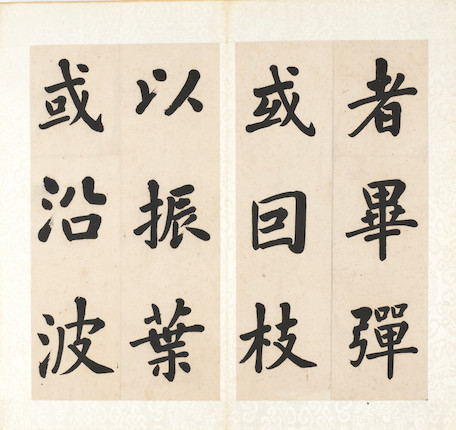 者畢彈
或囙枝
以振葉
或沿波